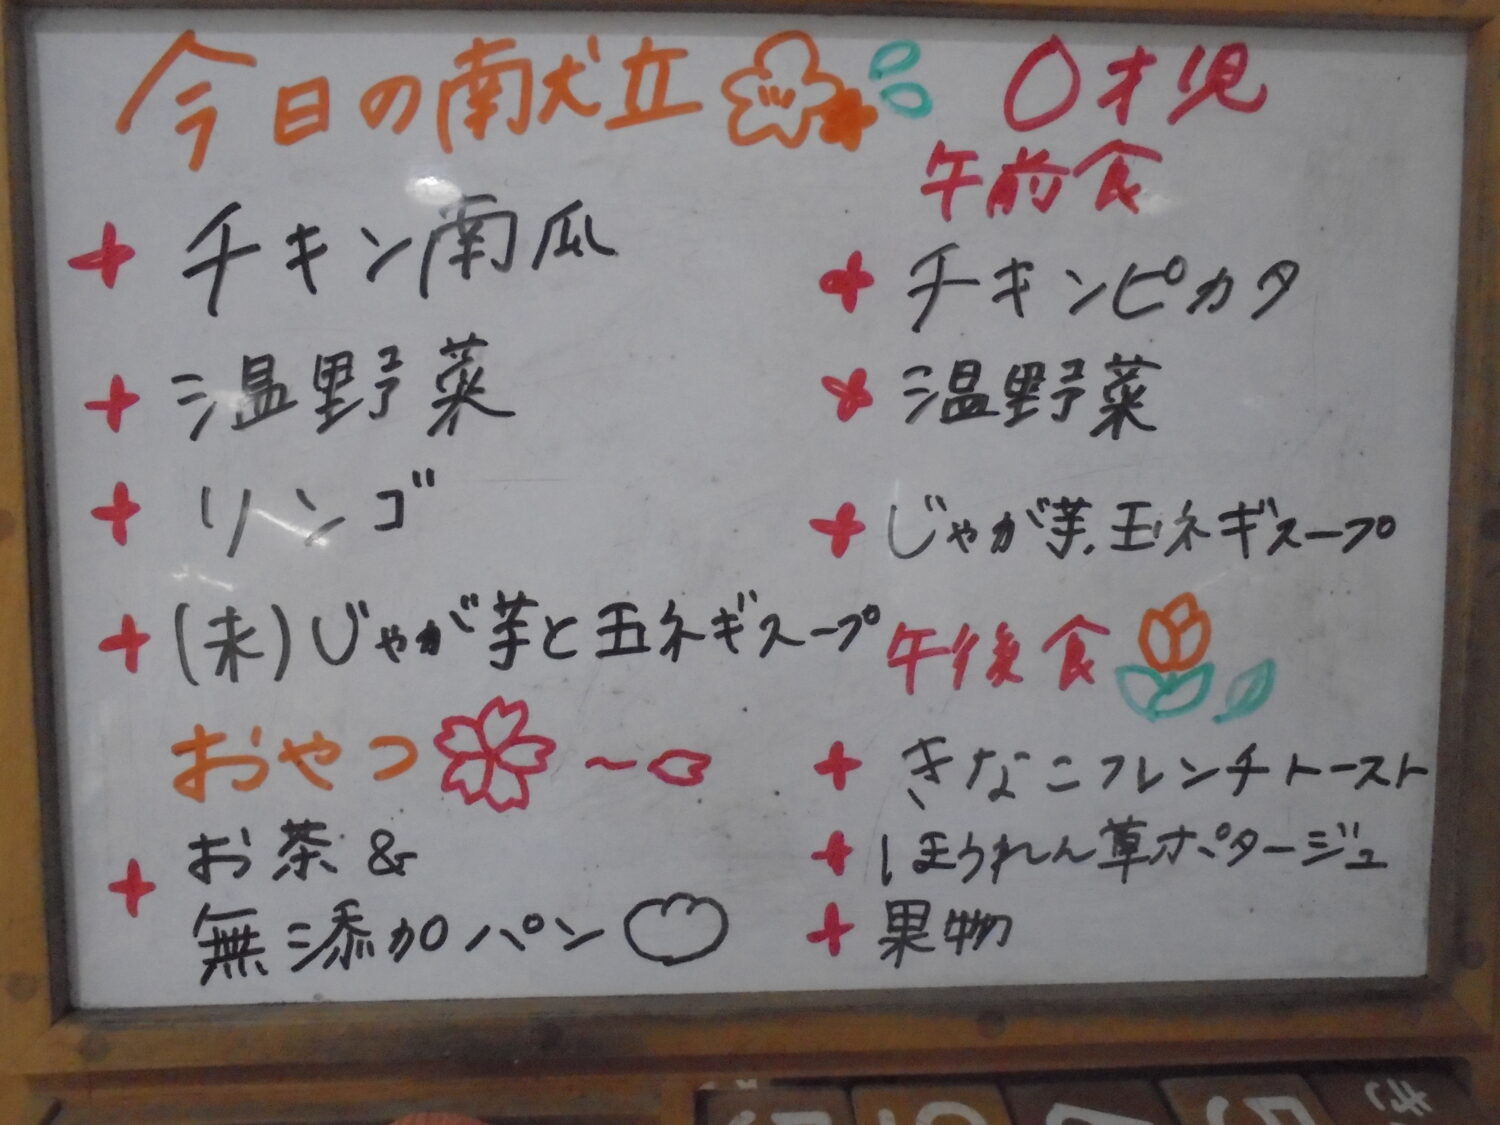 今日の献立
+ チキン南瓜
+ 温野菜
+ リンゴ
+ (未)じゃが芋と玉ネギスープ
おやつ
+ お茶&
無添加パン
0才児
午前食
+ チキンピカタ
+ 温野菜
+ じゃが芋、玉ネギスープ
午後食
+ きなこフレンチトースト
+ ほうれん草ポタージュ
+ 果物